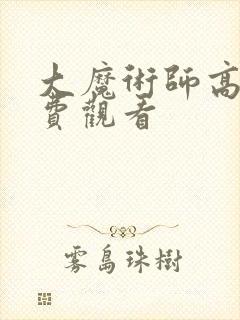 大魔術師高
費觀看
雾島珠樹